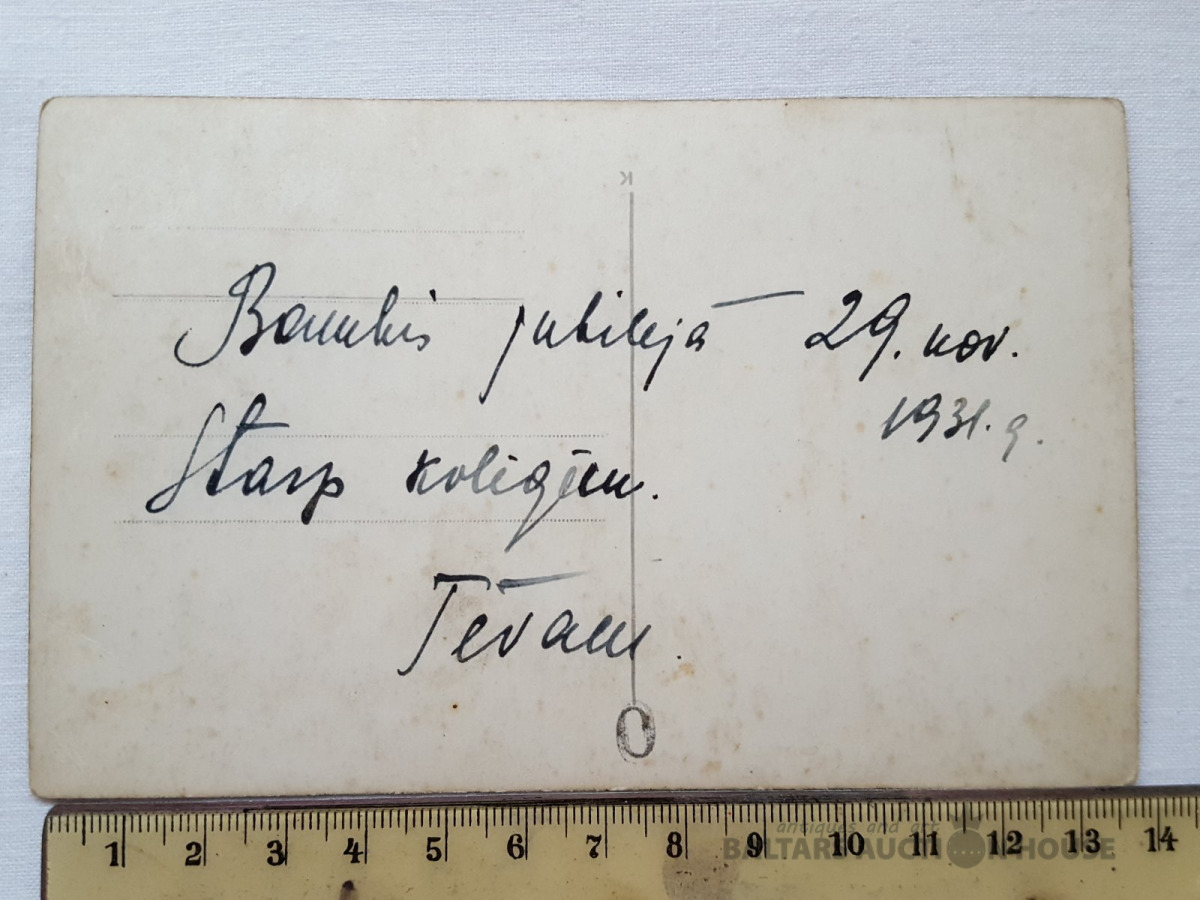 K
Bambis jubilejā 29. nov.
1931. g.
Starp kolēģēm.
Tēvam.
O
antiques and art
BALTARS AUCTION HOUSE
1 2 3 4 5 6 7 8 9 10 11 12 13 14